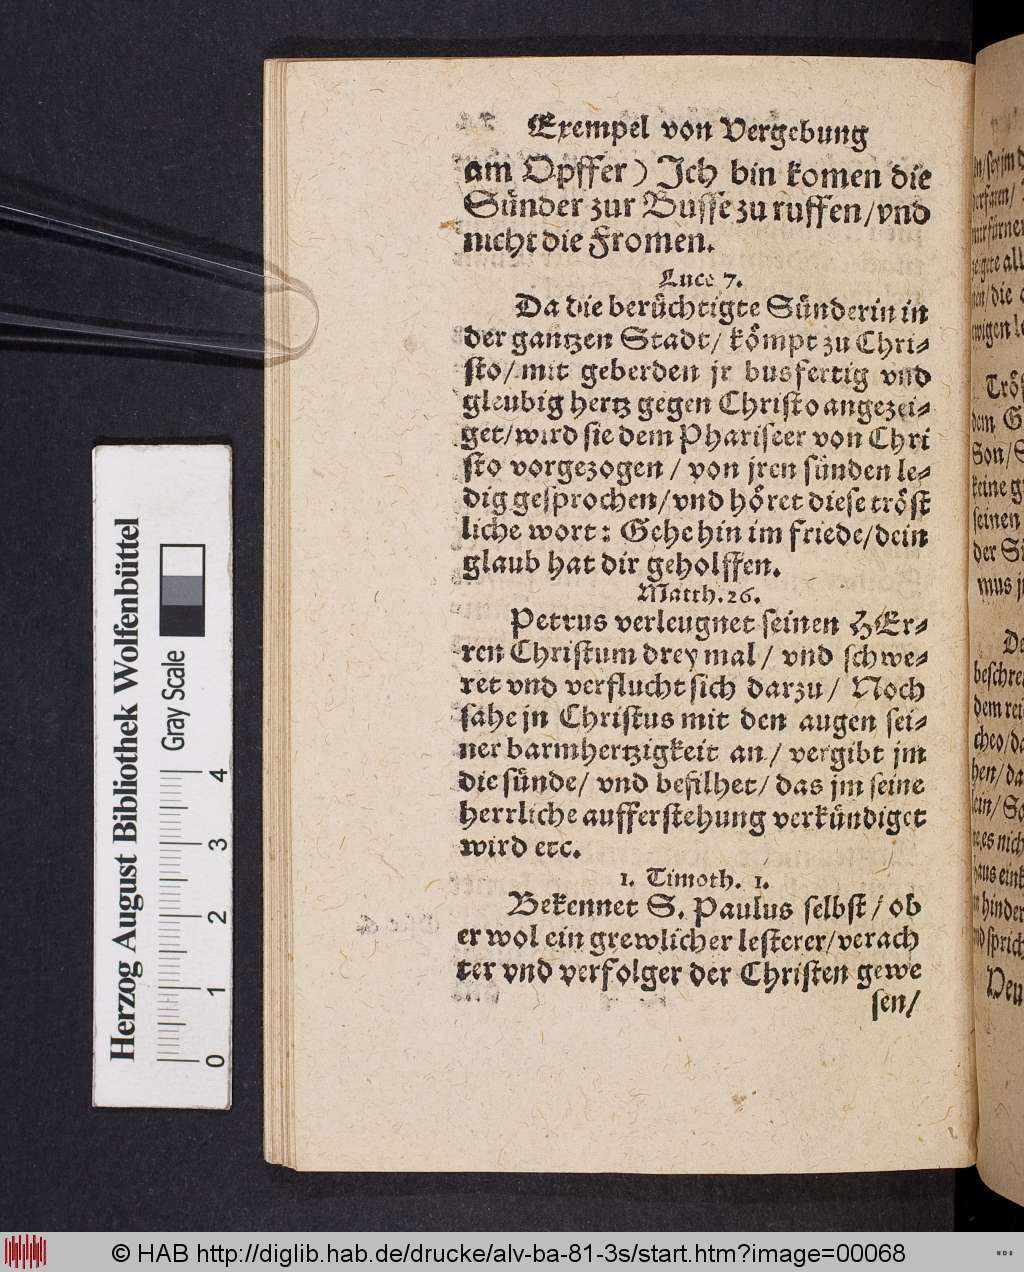 Exempel von Vergebung
am Opffer) Jch bin komen die
Sünder zur Busse zu ruffen/vnd
nicht die Fromen.
Luce 7.
Da die berüchtigte Sünderin in
der gantzen Stadt/ kömpt zu Chri-
sto/ mit geberden jr busfertig vnd
gleubig hertz gegen Christo angezei-
get/wird sie dem Phariseer von Chri
sto vorgezogen / von jren sünden le-
dig gesprochen/vnd höret diese tröst
liche wort: Gehe hin im friede/dein
glaub hat dir geholffen.
Matth. 26.
Petrus verleugnet seinen HEr-
ren Christum drey mal/ vnd schwe-
ret vnd verflucht sich darzu/ Noch
sahe jn Christus mit den augen sei-
ner barmhertzigkeit an/ vergibt jm
die sünde/ vnd befilhet/ das jm seine
herrliche aufferstehung verkündiget
wird etc.
1. Timoth. 1.
Bekennet S. Paulus selbst/ ob
er wol ein grewlicher lesterer/verach
ter vnd verfolger der Christen gewe
sen/
Herzog August Bibliothek Wolfenbüttel
Gray Scale
0 1 2 3 4
© HAB http://diglib.hab.de/drucke/alv-ba-81-3s/start.htm?image=00068